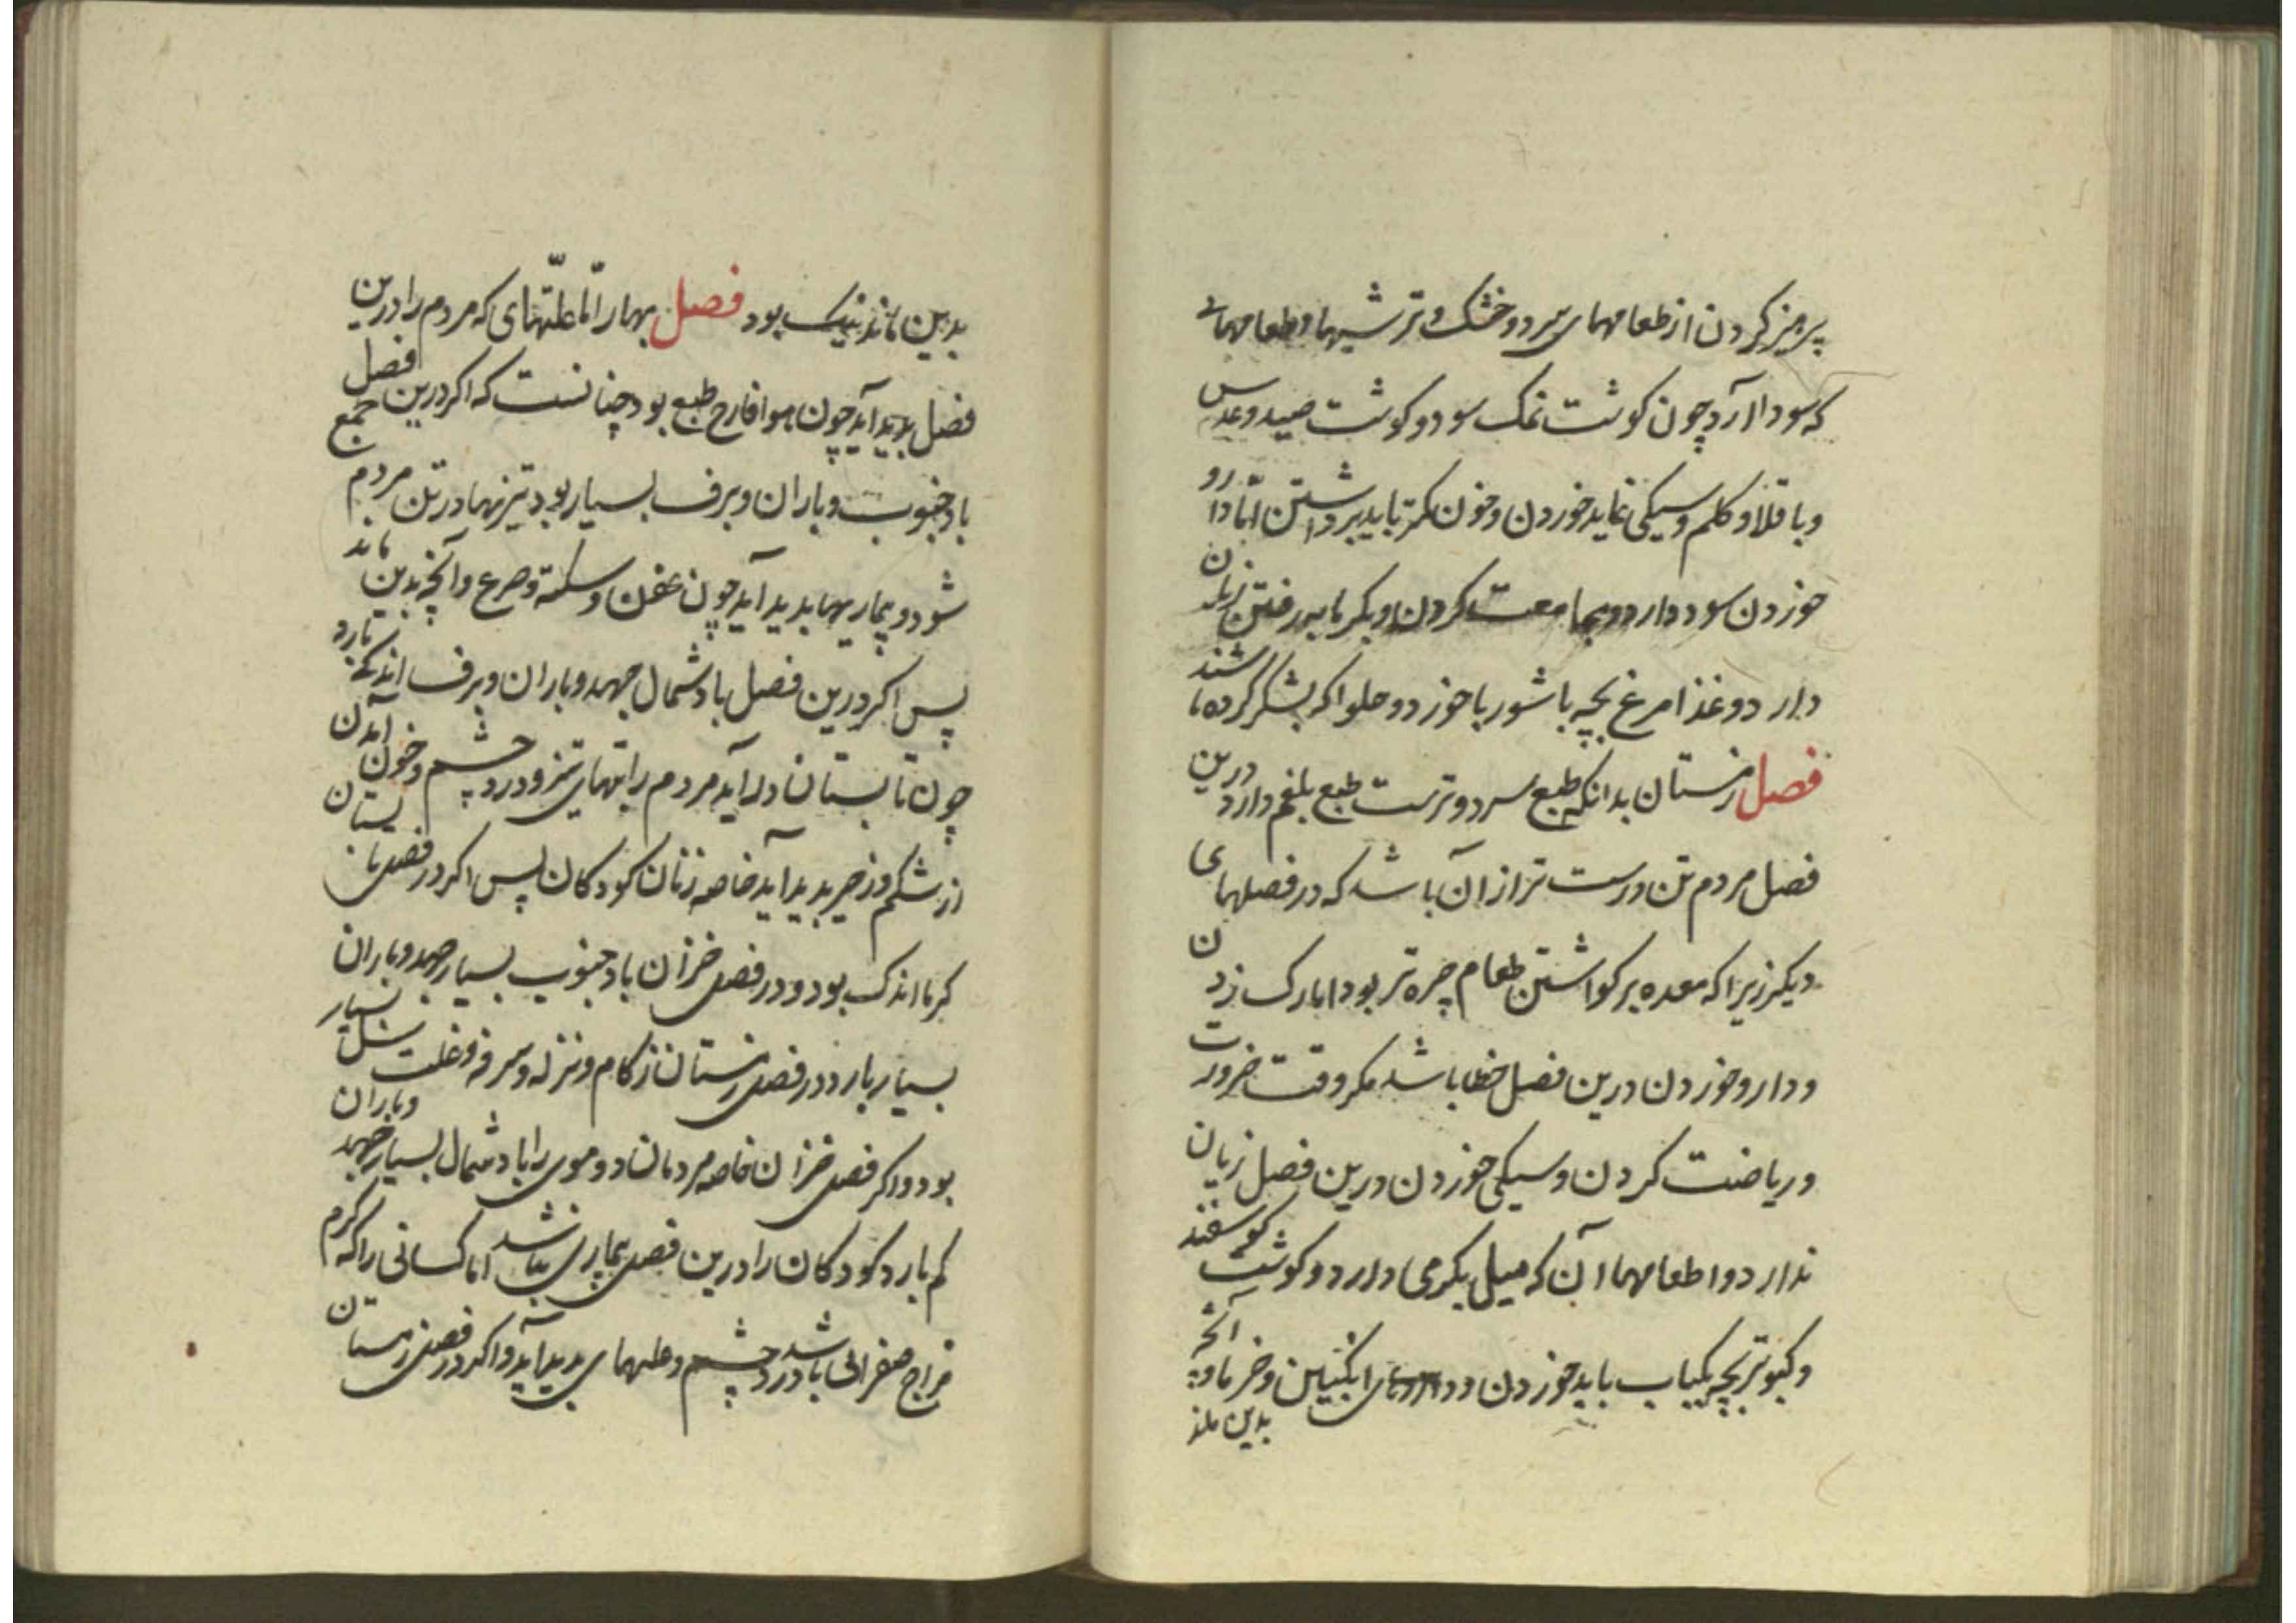 پرهیز کردن از طعامهای سرد و خشک و ترشیها و طعامهائی
که سودا آرد چون کوشت نمک سود و کوشت صید و عدس
و باقلا و کلم و سیکی نماید خوردن و خون کمتر باید برداشتن امّا دارو
خوردن سود دارد و مجامعت کردن و بکرمابه رفتن زیان
دارد و غذا مرغ بچه با شوربا خورد و حلوا که بشکر کرده باشند
فصل زمستان بدانکه طبع سرد و ترست طبع بلغم دارد درین
فصل مردم تن درست تر از آن باشد که در فصلهای
دیکر زیراکه معده بر کواشتن طعام چره تر بود اما رک زدن
و دارو خوردن درین فصل خطا باشد مکر وقت ضرورت
و ریاضت کردن و سیکی خوردن درین فصل زیان
ندارد و اطعامها آن که میل بکرمی دارد و کوشت کوسفند
و کبوتر بچه بکباب باید خوردن و انکبین و خرما و آنچه
بدین ماند
بدین ماند نیک بود فصل بهار امّا علّتهای که مردم را درین
فصل بدید آید چون هوا خارج طبع بود چنانست که اکر درین فصل
باد جنوب و باران و برف بسیار بود تیزیها در تن مردم جمع
شود و بیماریها بدید آید چون عفن و سکته و صرع و آنچه بدین ماند
پس اکر درین فصل باد شمال جهد و باران و برف اندکی بارد
چون تابستان درآید مردم را تبهای تیز و درد چشم و خون آمدن
از شکم و زحیر بدید آید خاصه زنان کودکان پس اکر در فصل تابستان
کرما اندک بود و در فصل خزان باد جنوب بسیار جهد و باران
بسیار بارد در فصل زمستان زکام و نزله و سرفه و علت سل بسیار
بود و اکر فصل خزان خاصه مردمان دموی را باد شمال بسیار جهد و باران
کم بارد کودکان را درین فصل بیماری نباشد اما کسانی را که کرم
مزاج صفرائی باشد درد چشم و علتهای بدید آید و اکر در فصل زمستان